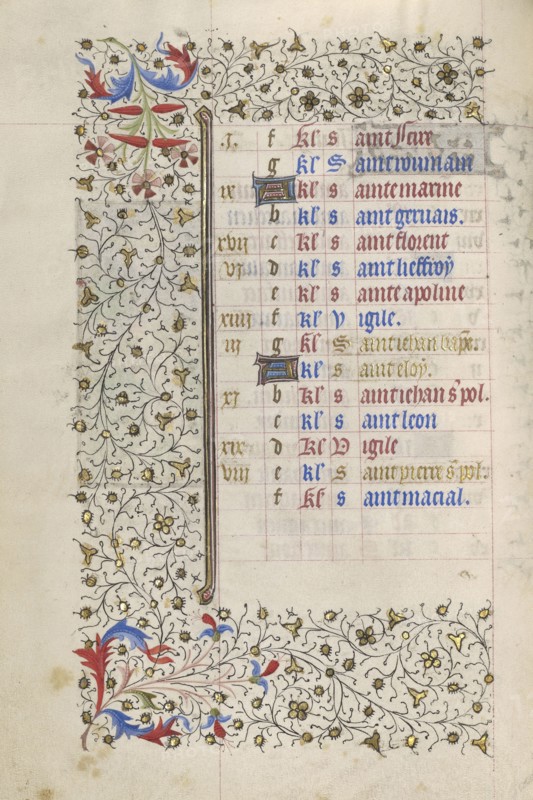 .I. f kl s aint ssire
g kl S aint souinain
ix A kl s ainte marine
b kl s aint geruais.
xvij c kl s aint florent
vj d kl s aint lieffroy
e kl s ainte apoline
xiiij f kl v igile.
iij g kl S aint iehan bapte.
A kl s aint eloy.
xj b kl s aint iehan s pol.
c kl s aint leon
xix d kl V igile
viij e kl S aint pierre s pol.
f kl s aint macial.